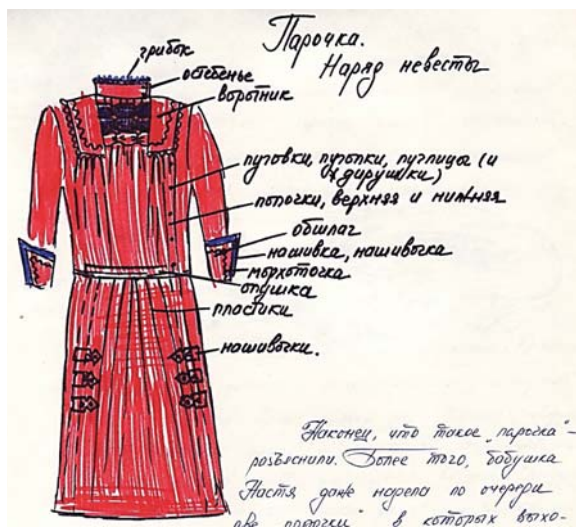 Парочка.
Наряд невесты
грибок
остебенье
воротник
пуговки, пуропки, пуглицы (и
дирушки)
попочки, верхняя и нижняя
обшлаг
нашивка, нашивочка
морхоточка
опушка
пластики
нашивочки.
Наконец, что такое „парочка“ –
розъяснили. Более того, бабушка
Настя даже надела по очереди
две „парочки“, в которых выхо-